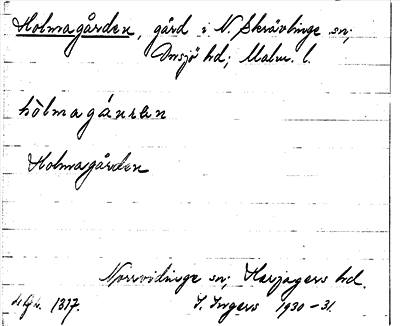 Holmagården, gård i N. Skrävlinge sn;
Onsjö hd; Malm. l.
hòlmagáɴꞅɛn
Holmagården
Norrvidinge sn; Harjagers hd.
1317. S. Ingers 1930-31.